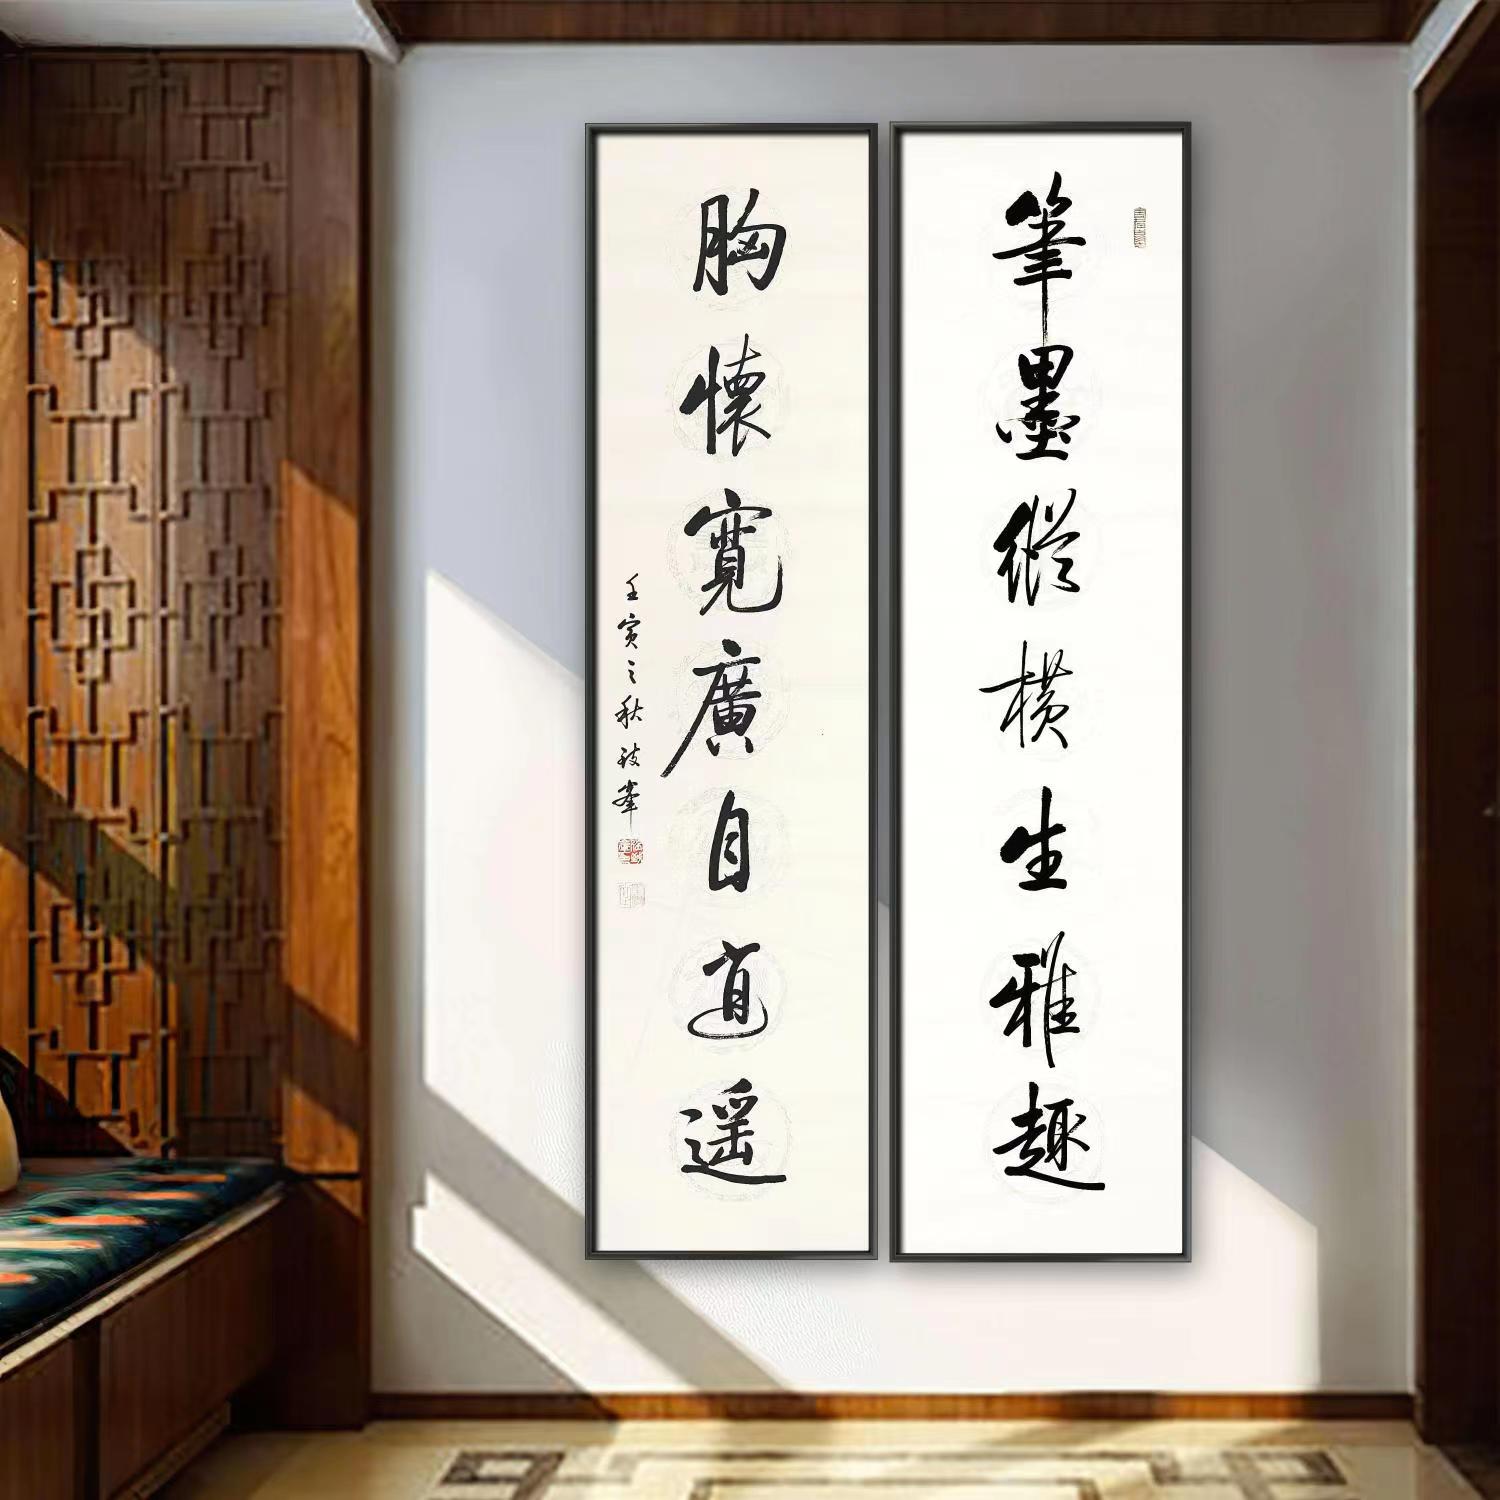 筆墨縱橫生雅趣
胸懷寬廣自逍遥
壬寅之秋